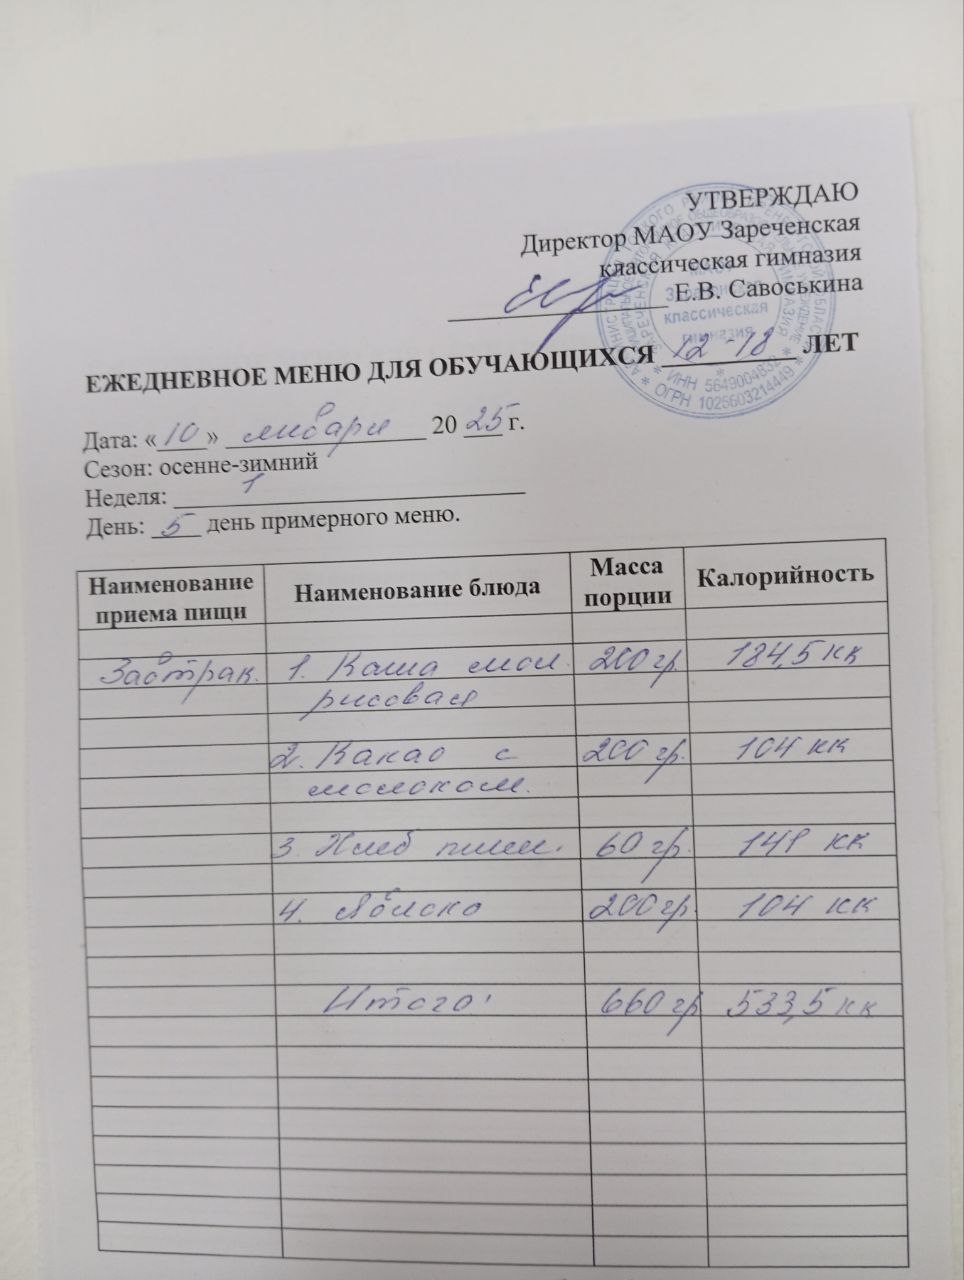 УТВЕРЖДАЮ
Директор МАОУ Зареченская
классическая гимназия
Е.В. Савоськина
МАОУ
Зареченская
классическая
гимназия
* ИНН 5649004832 *
* ОГРН 1025603214449 *
ЕЖЕДНЕВНОЕ МЕНЮ ДЛЯ ОБУЧАЮЩИХСЯ 12-18 ЛЕТ
Дата: «10» января 20 25 г.
Сезон: осенне-зимний
Неделя: 1
День: 5 день примерного меню.
Наименование приема пищи Наименование блюда Масса порции Калорийность
Завтрак. 1. Каша мол. 200 гр 184,5 кк
рисовая
2. Какао с 200 гр. 104 кк
молоком.
3. Хлеб пшен. 60 гр. 141 кк
4. Яблоко 200 гр 104 кк
Итого: 660 гр 533,5 кк